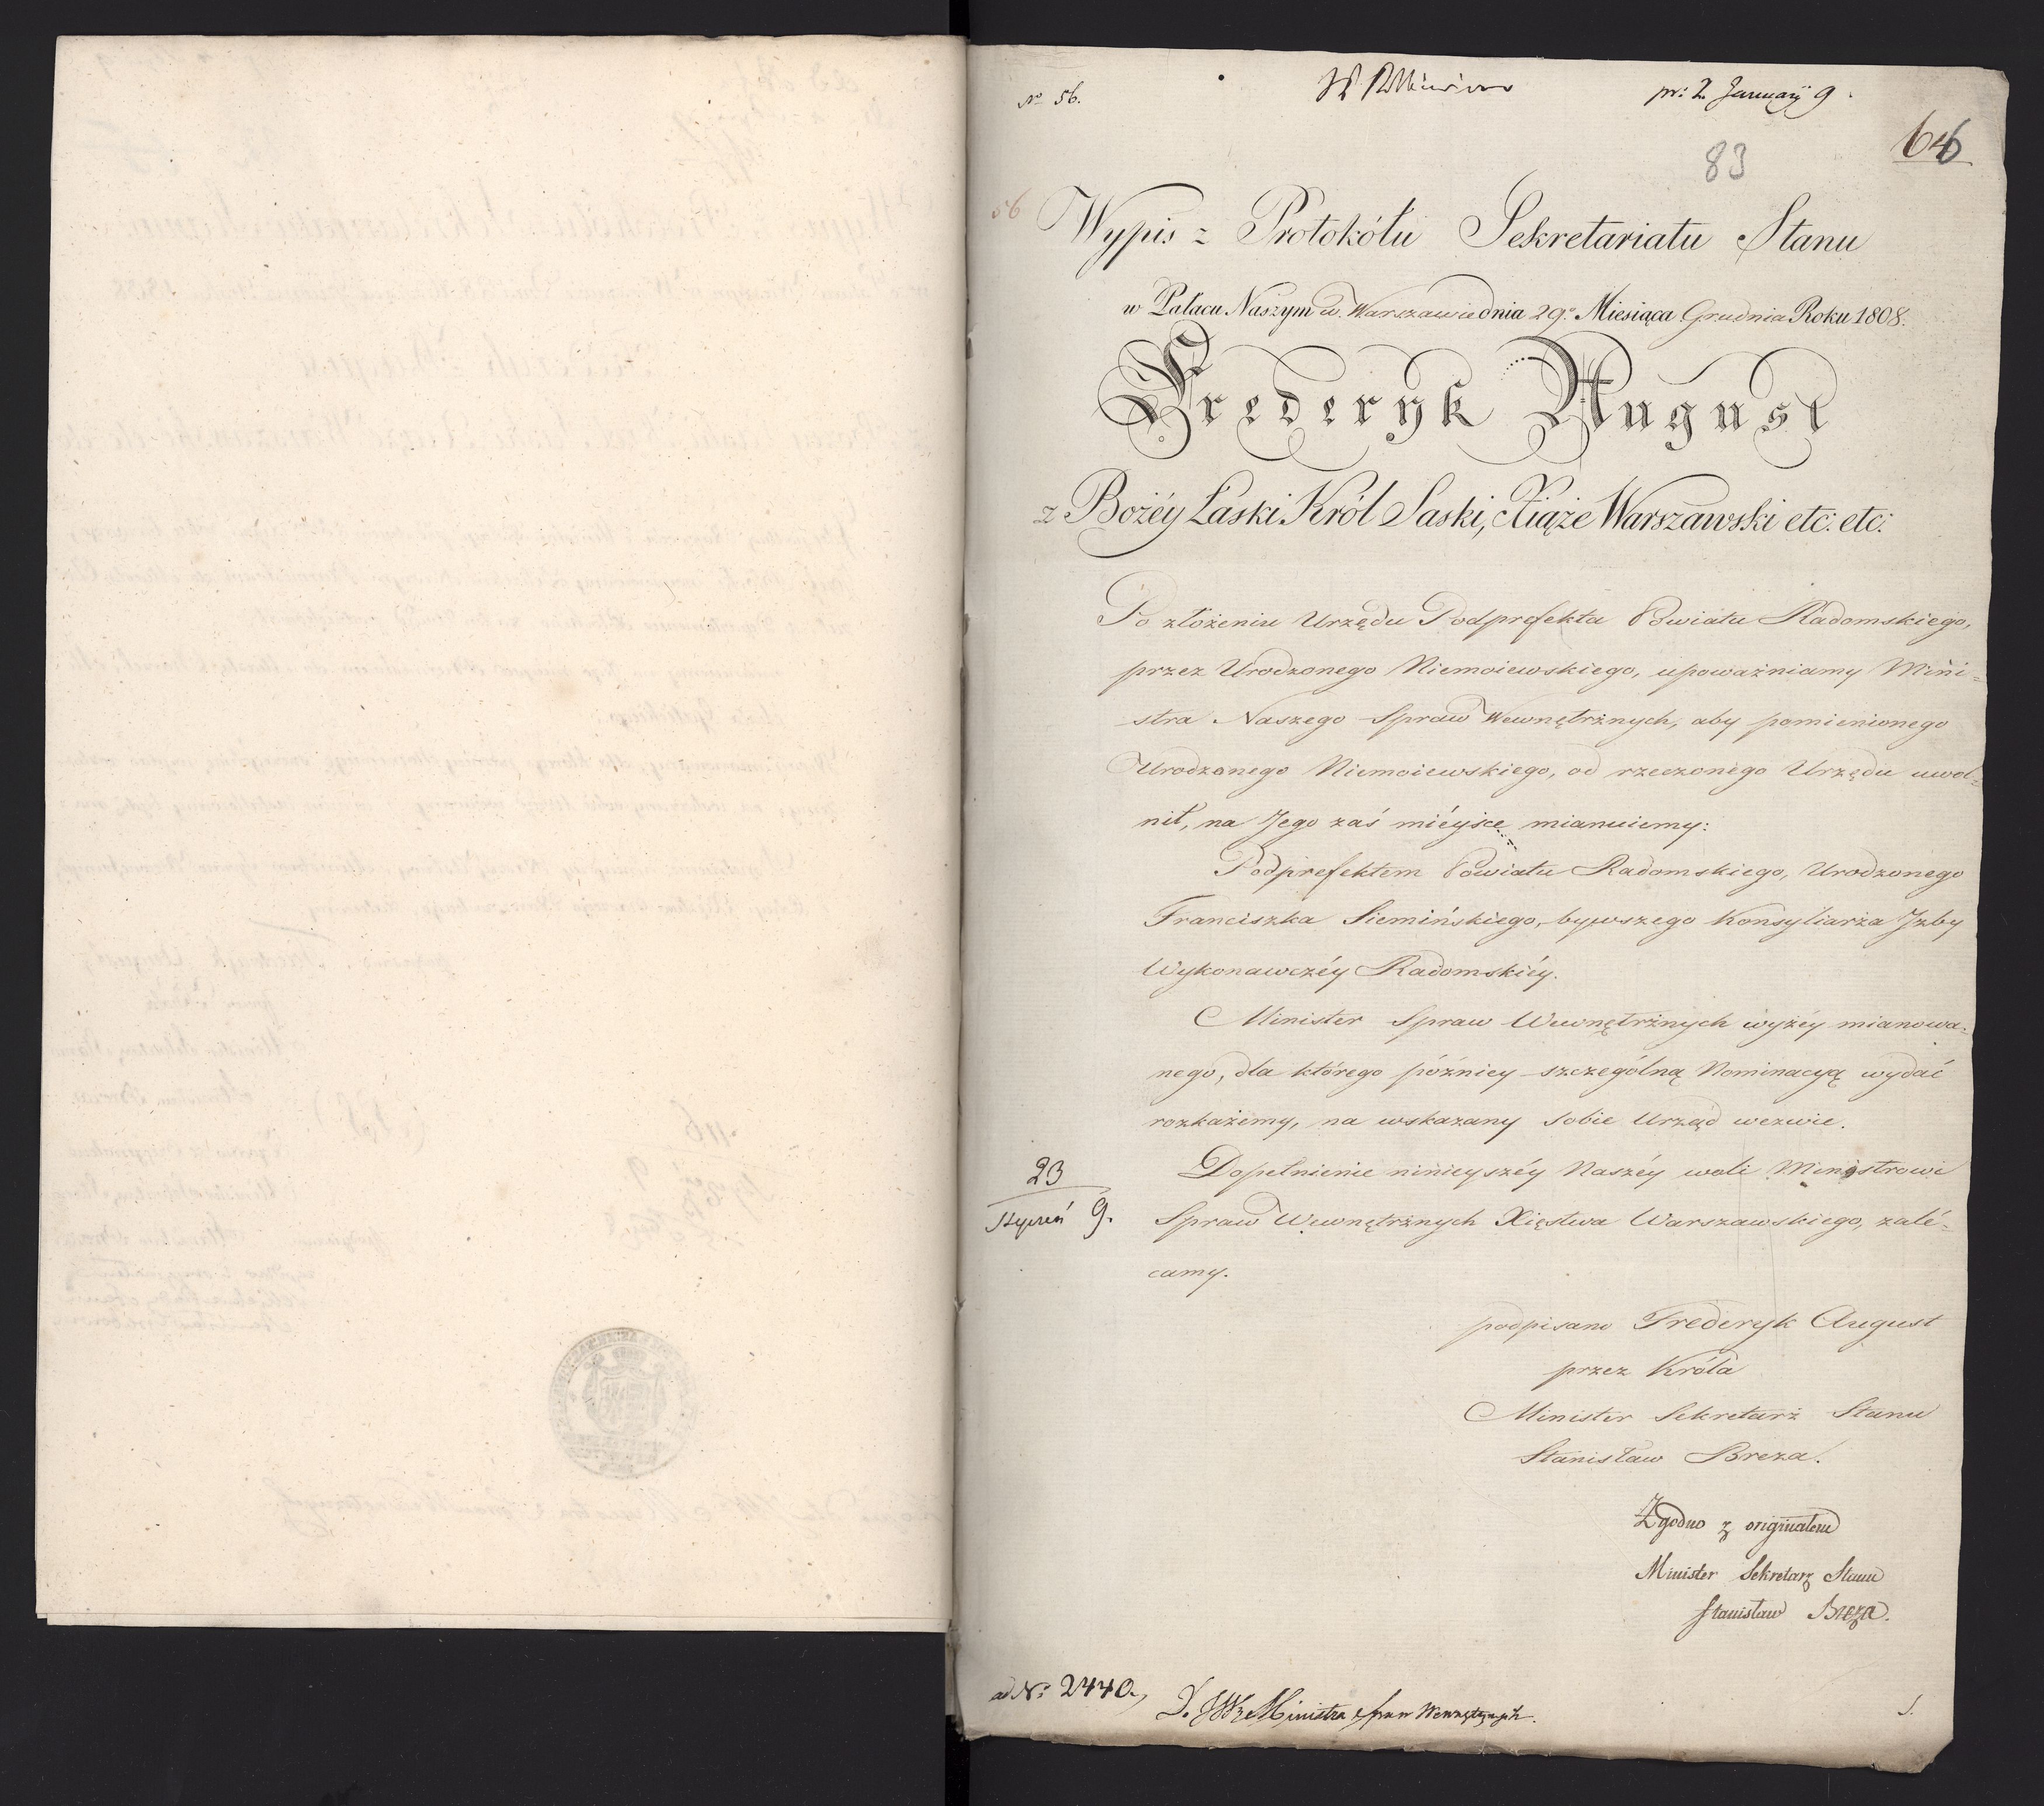 No 56.
pr: 2 January 9.
83
646
56
Wypis z Protokółu Sekretariatu Stanu
w Pałacu Naszym w Warszawie dnia 29o Miesiąca Grudnia Roku 1808.
Fryderyk August
z Bożéy Łaski Król Saski, Xiąże Warszawski etc: etc:
Po złożeniu Urzędu Podprefekta Powiatu Radomskiego,
przez Urodzonego Niemoiewskiego, upoważniamy Mini=
stra Naszego Spraw Wewnętrznych, aby pomienionego
Urodzonego Niemoiewskiego, od rzeczonego Urzędu uwol=
nił, na Jego zaś miéysce mianuiemy:
Podprefektem Powiatu Radomskiego, Urodzonego
Franciszka Siemińskiego, bywszego Konsyliarza Jzby
Wykonawczéy Radomskiéy.
Minister Spraw Wewnętrznych wyżéy mianowa=
nego, dla którego późniey szczególną Nominacyą wydać
rozkażemy, na wskazany sobie Urząd wezwie.
Dopełnienie ninieyszéy Naszéy woli Ministrowi
Spraw Wewnętrznych Xięstwa Warszawskiego, zalé=
camy.
23
Styczeń 9.
podpisano Frederyk August
przez Króla
Minister Sekretarz Stanu
Stanisław Breza.
Zgodno z originałem
Minister Sekretarz Stanu
Stanisław Breza.
ad No 2440.,
D. JWgo Ministra Spraw Wewnętrznych.